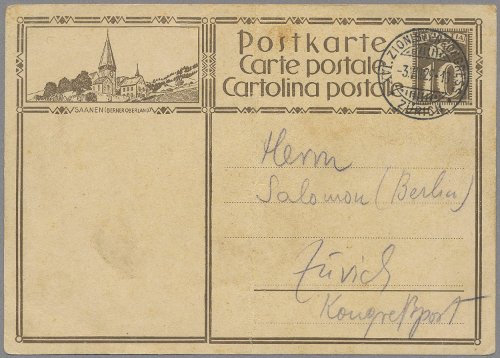 Postkarte
Carte postale
Cartolina postale
SAANEN (BERNER OBERLAND)
10
ZÜRICH
Herrn
Salomon (Berlin)
Zürich
Kongreßpost